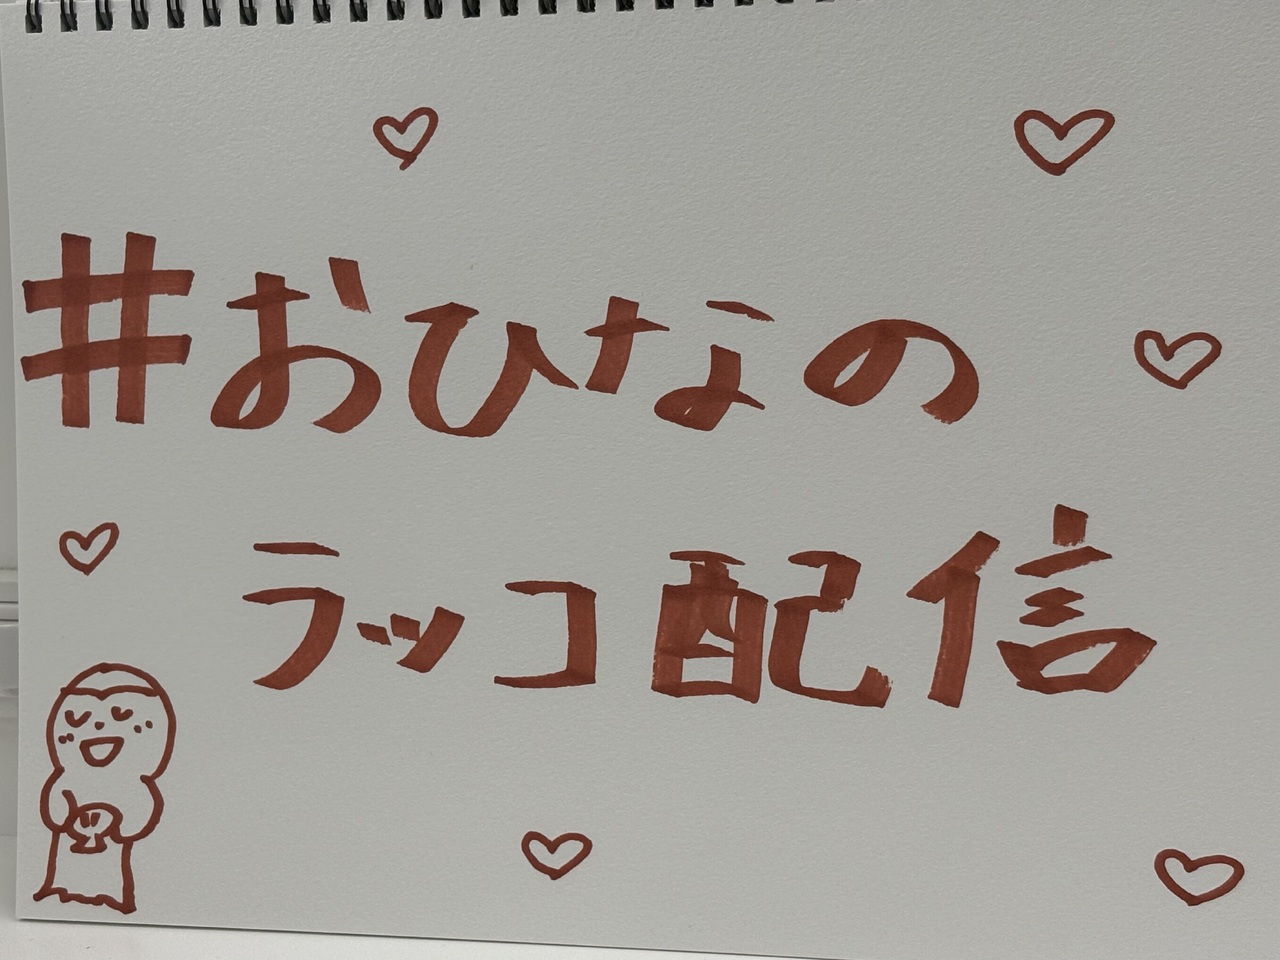 #おひなの
ラッコ配信